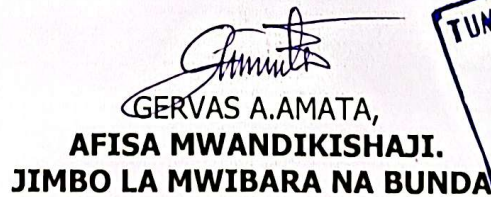 TUM
GERVAS A.AMATA,
AFISA MWANDIKISHAJI.
JIMBO LA MWIBARA NA BUNDA